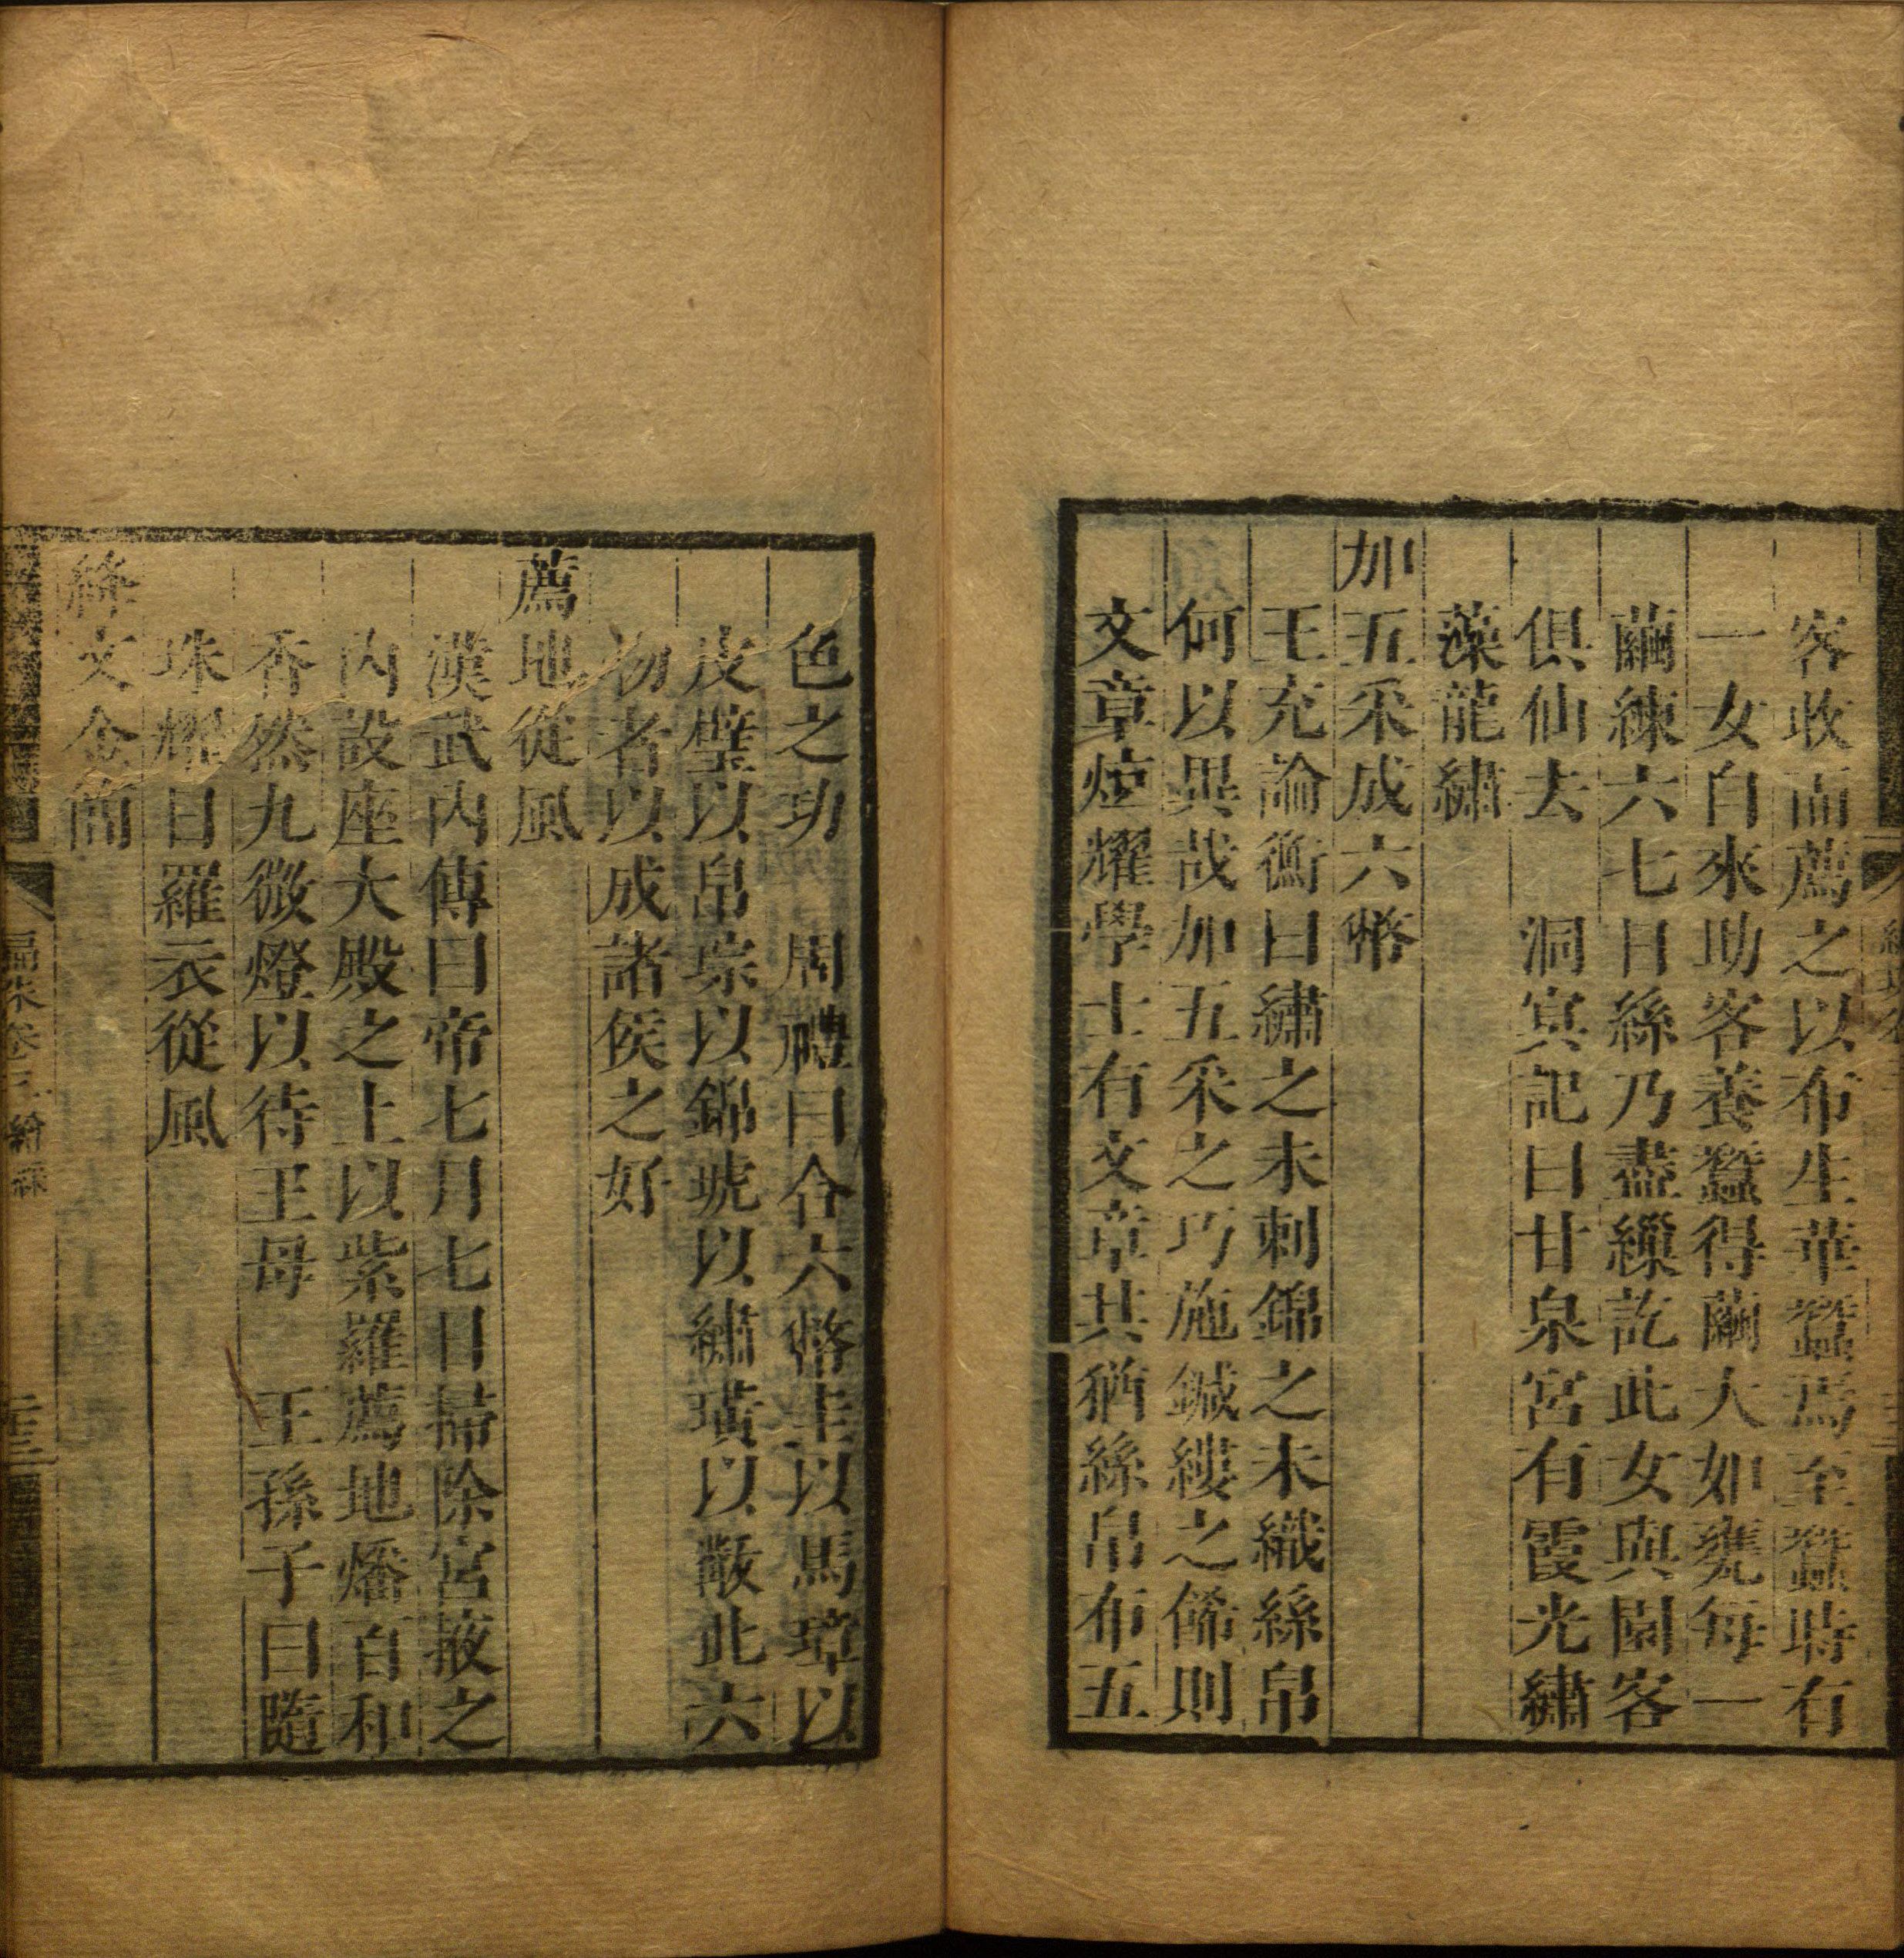 客收而薦之以布生華蠶焉至蠶時有
一女自來助客養蠶得繭大如甕每一
繭繅六七日絲乃盡繅訖此女與園客
俱仙去　洞冥記曰甘泉宮有霞光繡
藻龍繡
加五采成六幣
王充論衡曰繡之未刺錦之未織絲帛
何以異哉加五采之巧施鍼縷之餙則
文章炫耀學士有文章其猶絲帛布五
色之功　周禮曰合六幣圭以馬璋以
皮璧以帛琮以錦琥以繡璜以黻此六
物者以成諸侯之好
薦地從風
漢武內傳曰帝七月七日掃除宮掖之
內設座大殿之上以紫羅薦地燔百和
香然九微燈以待王母　王孫子曰隨
珠耀日羅衣從風
綘文金簡
編珠卷三 繒綵
二十三